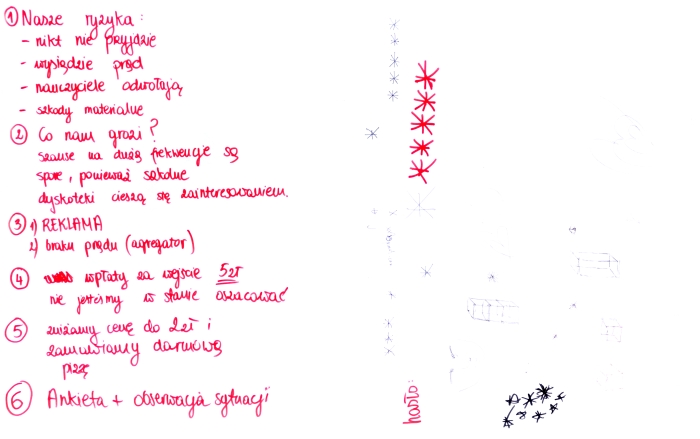 ① Nasze ryzyka:
- nikt nie przyjdzie
- wysiądzie prąd
- nauczyciele odwołają
- szkody materialne
② Co nam grozi?
szanse na dużą frekwencję są
spore, ponieważ szkolne
dyskoteki cieszą się zainteresowaniem.
③ 1) REKLAMA
2) braku prądu (agregator)
④ wpłaty za wejście 5zł
nie jesteśmy w stanie oszacować
⑤ zniżamy cenę do 2zł i
zamawiamy darmową
pizzę
⑥ Ankieta + obserwacja sytuacji
hasło: